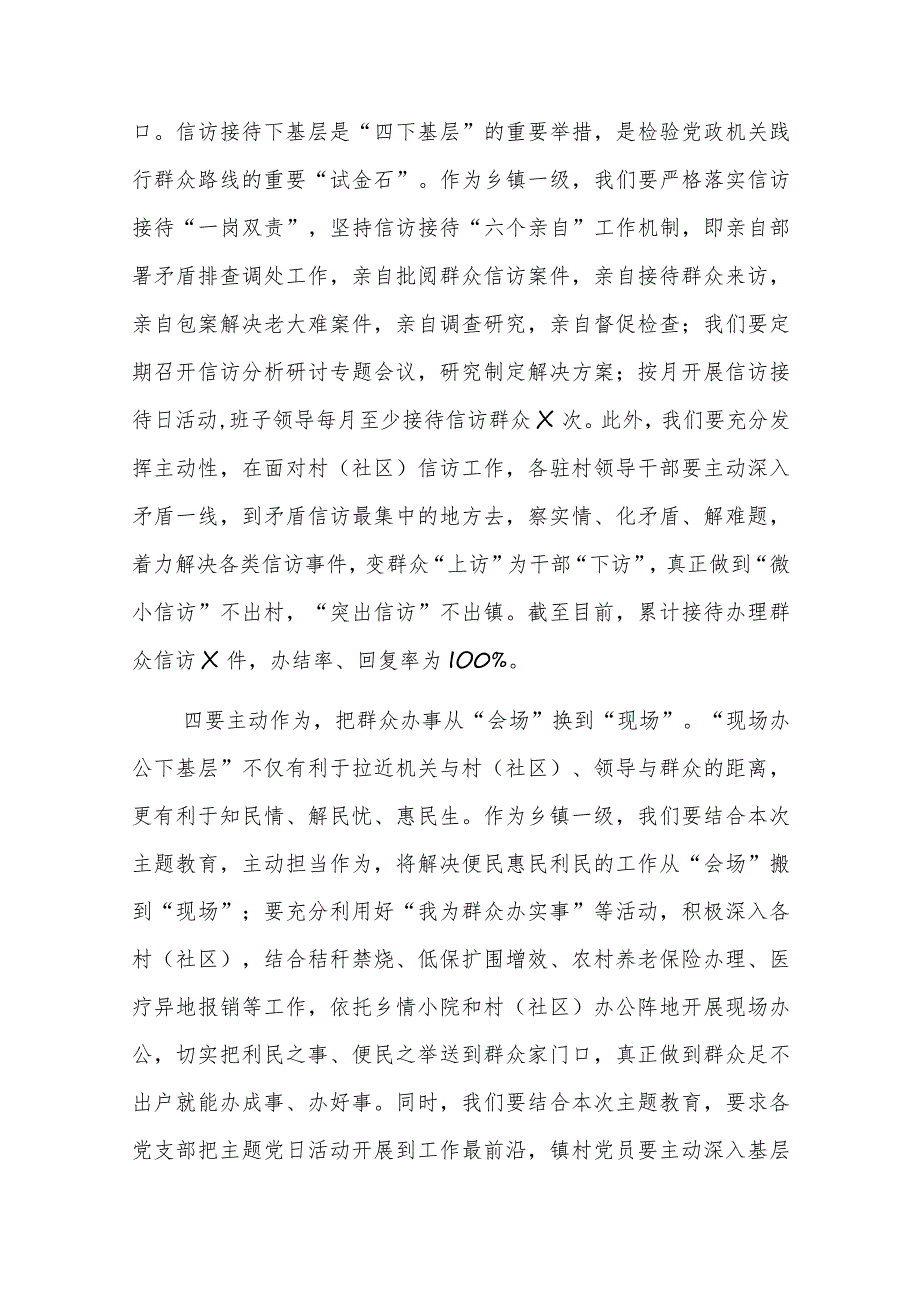 口。信访接待下基层是“四下基层”的重要举措，是检验党政机关践
行群众路线的重要“试金石”。作为乡镇一级，我们要严格落实信访
接待“一岗双责”，坚持信访接待“六个亲自”工作机制，即亲自部
署矛盾排查调处工作，亲自批阅群众信访案件，亲自接待群众来访，
亲自包案解决老大难案件，亲自调查研究，亲自督促检查；我们要定
期召开信访分析研讨专题会议，研究制定解决方案；按月开展信访接
待日活动,班子领导每月至少接待信访群众X次。此外，我们要充分发
挥主动性，在面对村（社区）信访工作，各驻村领导干部要主动深入
矛盾一线，到矛盾信访最集中的地方去，察实情、化矛盾、解难题，
着力解决各类信访事件，变群众“上访”为干部“下访”，真正做到“微
小信访”不出村，“突出信访”不出镇。截至目前，累计接待办理群
众信访X件，办结率、回复率为100%。
四要主动作为，把群众办事从“会场”换到“现场”。“现场办
公下基层”不仅有利于拉近机关与村（社区）、领导与群众的距离，
更有利于知民情、解民忧、惠民生。作为乡镇一级，我们要结合本次
主题教育，主动担当作为，将解决便民惠民利民的工作从“会场”搬
到“现场”；要充分利用好“我为群众办实事”等活动，积极深入各
村（社区），结合秸秆禁烧、低保扩围增效、农村养老保险办理、医
疗异地报销等工作，依托乡情小院和村（社区）办公阵地开展现场办
公，切实把利民之事、便民之举送到群众家门口，真正做到群众足不
出户就能办成事、办好事。同时，我们要结合本次主题教育，要求各
党支部把主题党日活动开展到工作最前沿，镇村党员要主动深入基层